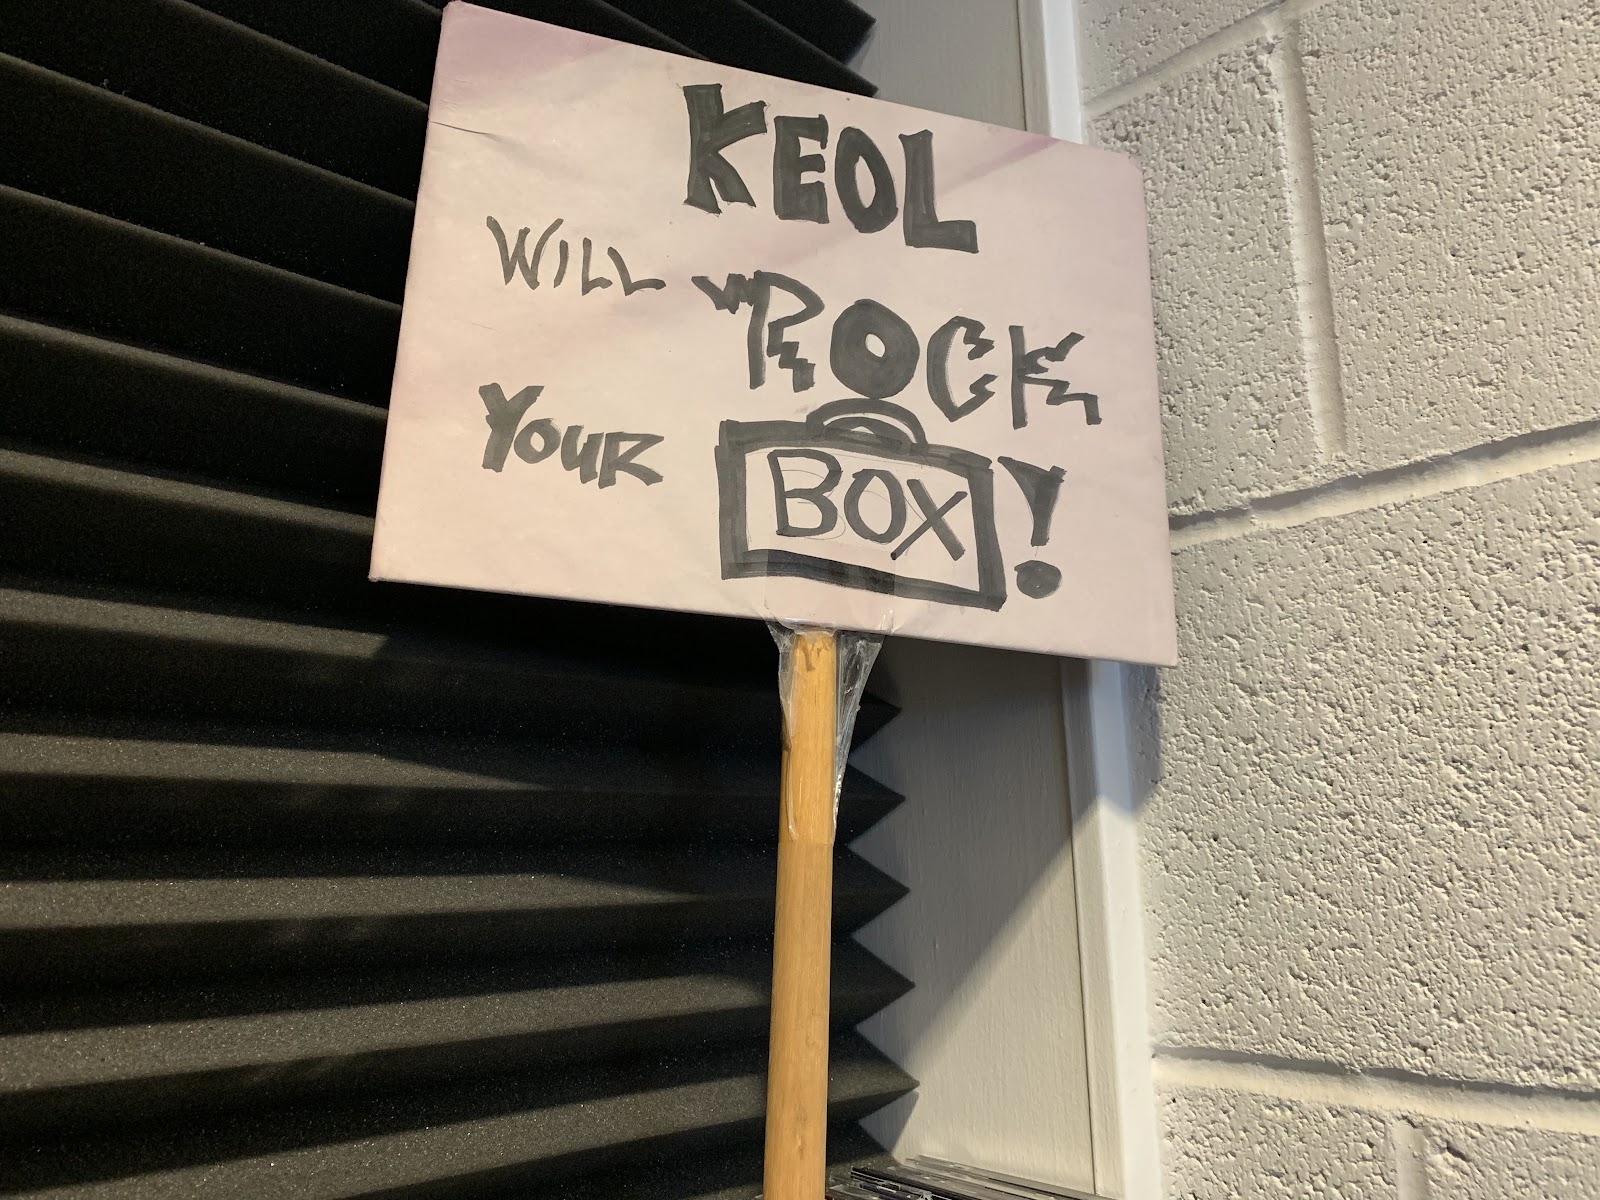 KEOL
WILL ROCK
YOUR BOX!